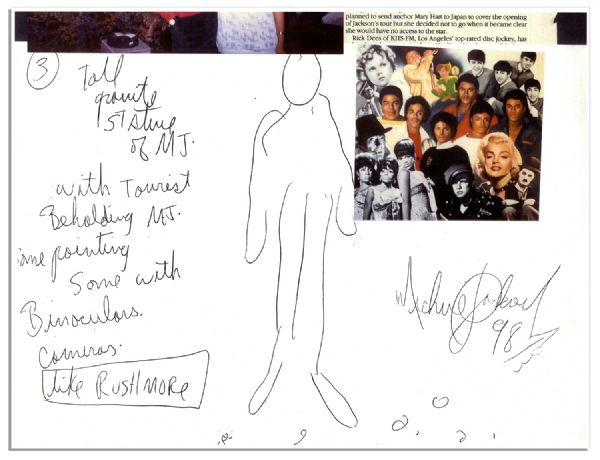 planned to send anchor Mary Hart to Japan to cover the opening
of Jackson's tour but she decided not to go when it became clear
she would have no access to the star.
Rick Dees of KIIS-FM, Los Angeles' top-rated disc jockey, has
3
Tall
granite
Statue
of MJ.
with Tourist
Beholding MJ.
some pointing
Some with
Binoculars.
Cameras.
like RUSHMORE
Michael Jackson
98